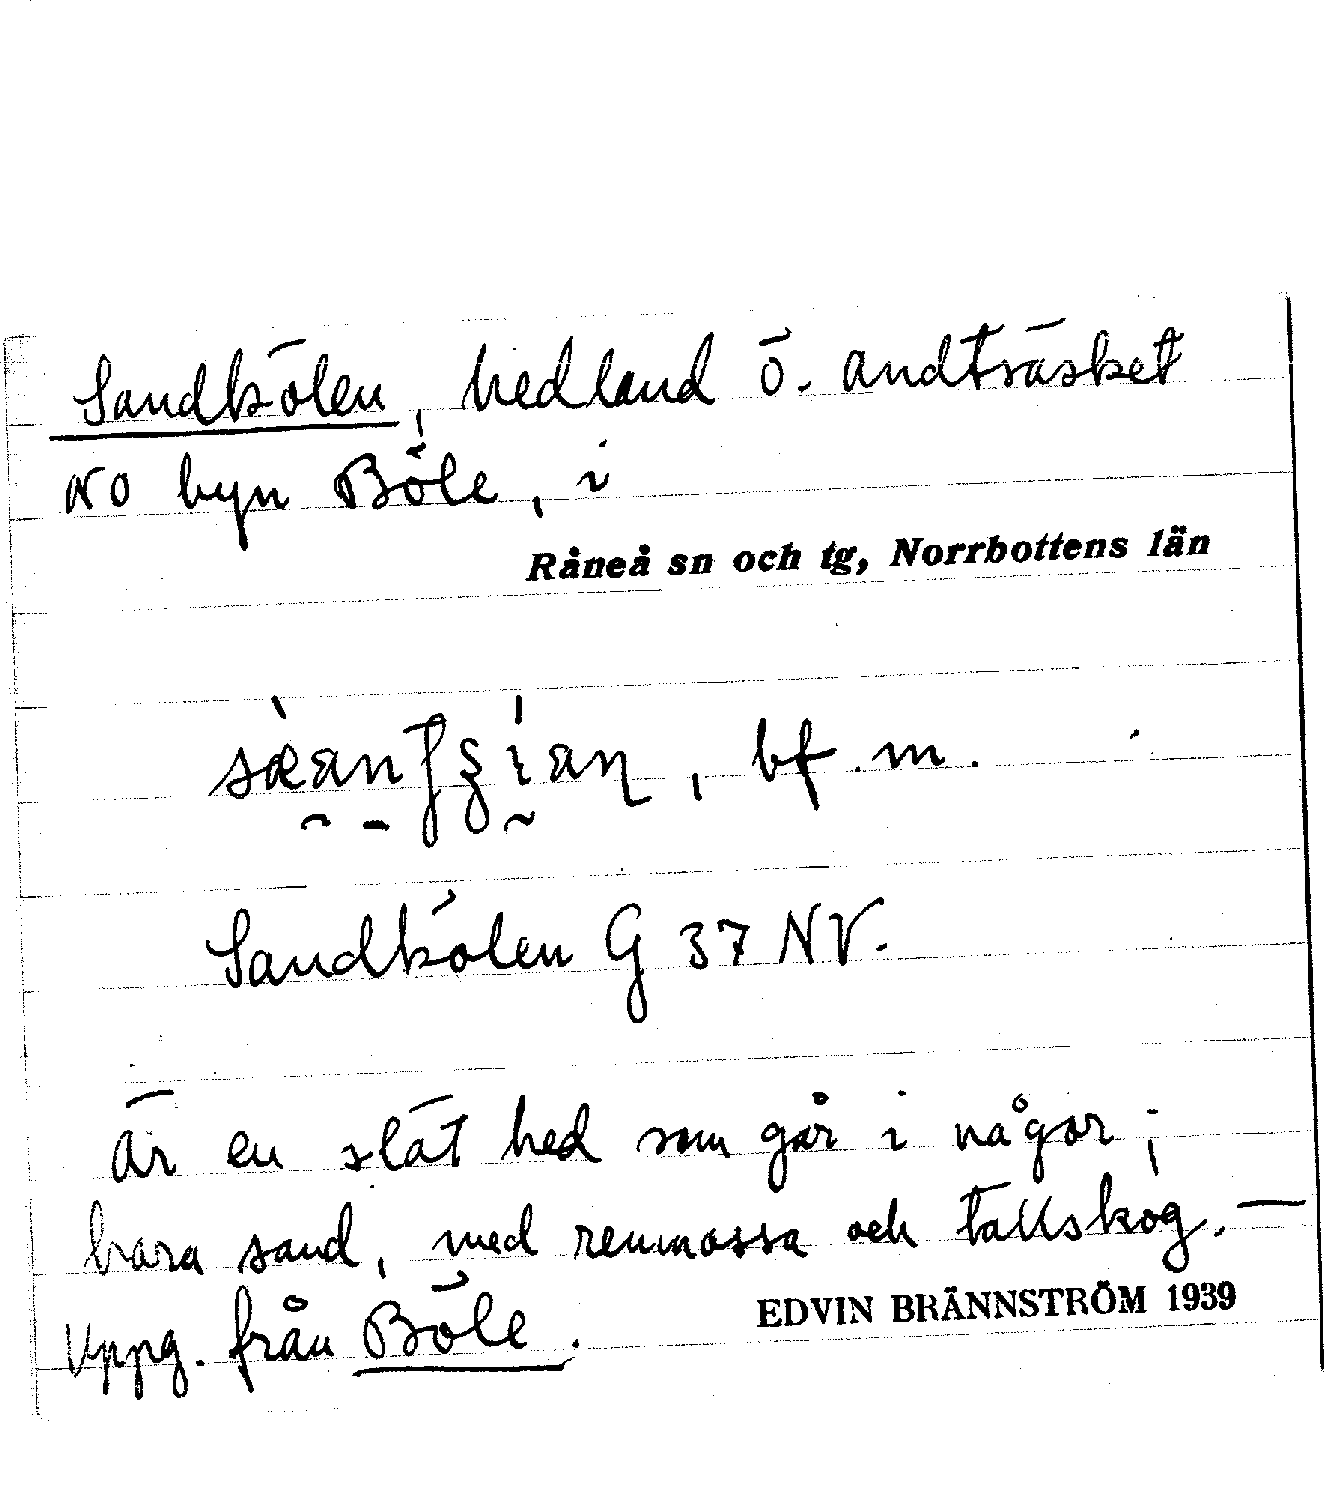 Sandkölen, hedland ö. Andträsket
NO byn Böle, i
Råneå sn och tg, Norrbottens län
, bf. m.
Sandkölen G 37 NV.
Är en slät hed som går i någor;
bara sand, med renmossa och tallskog. —
Uppg. från Böle.
EDVIN BRÄNNSTRÖM 1939